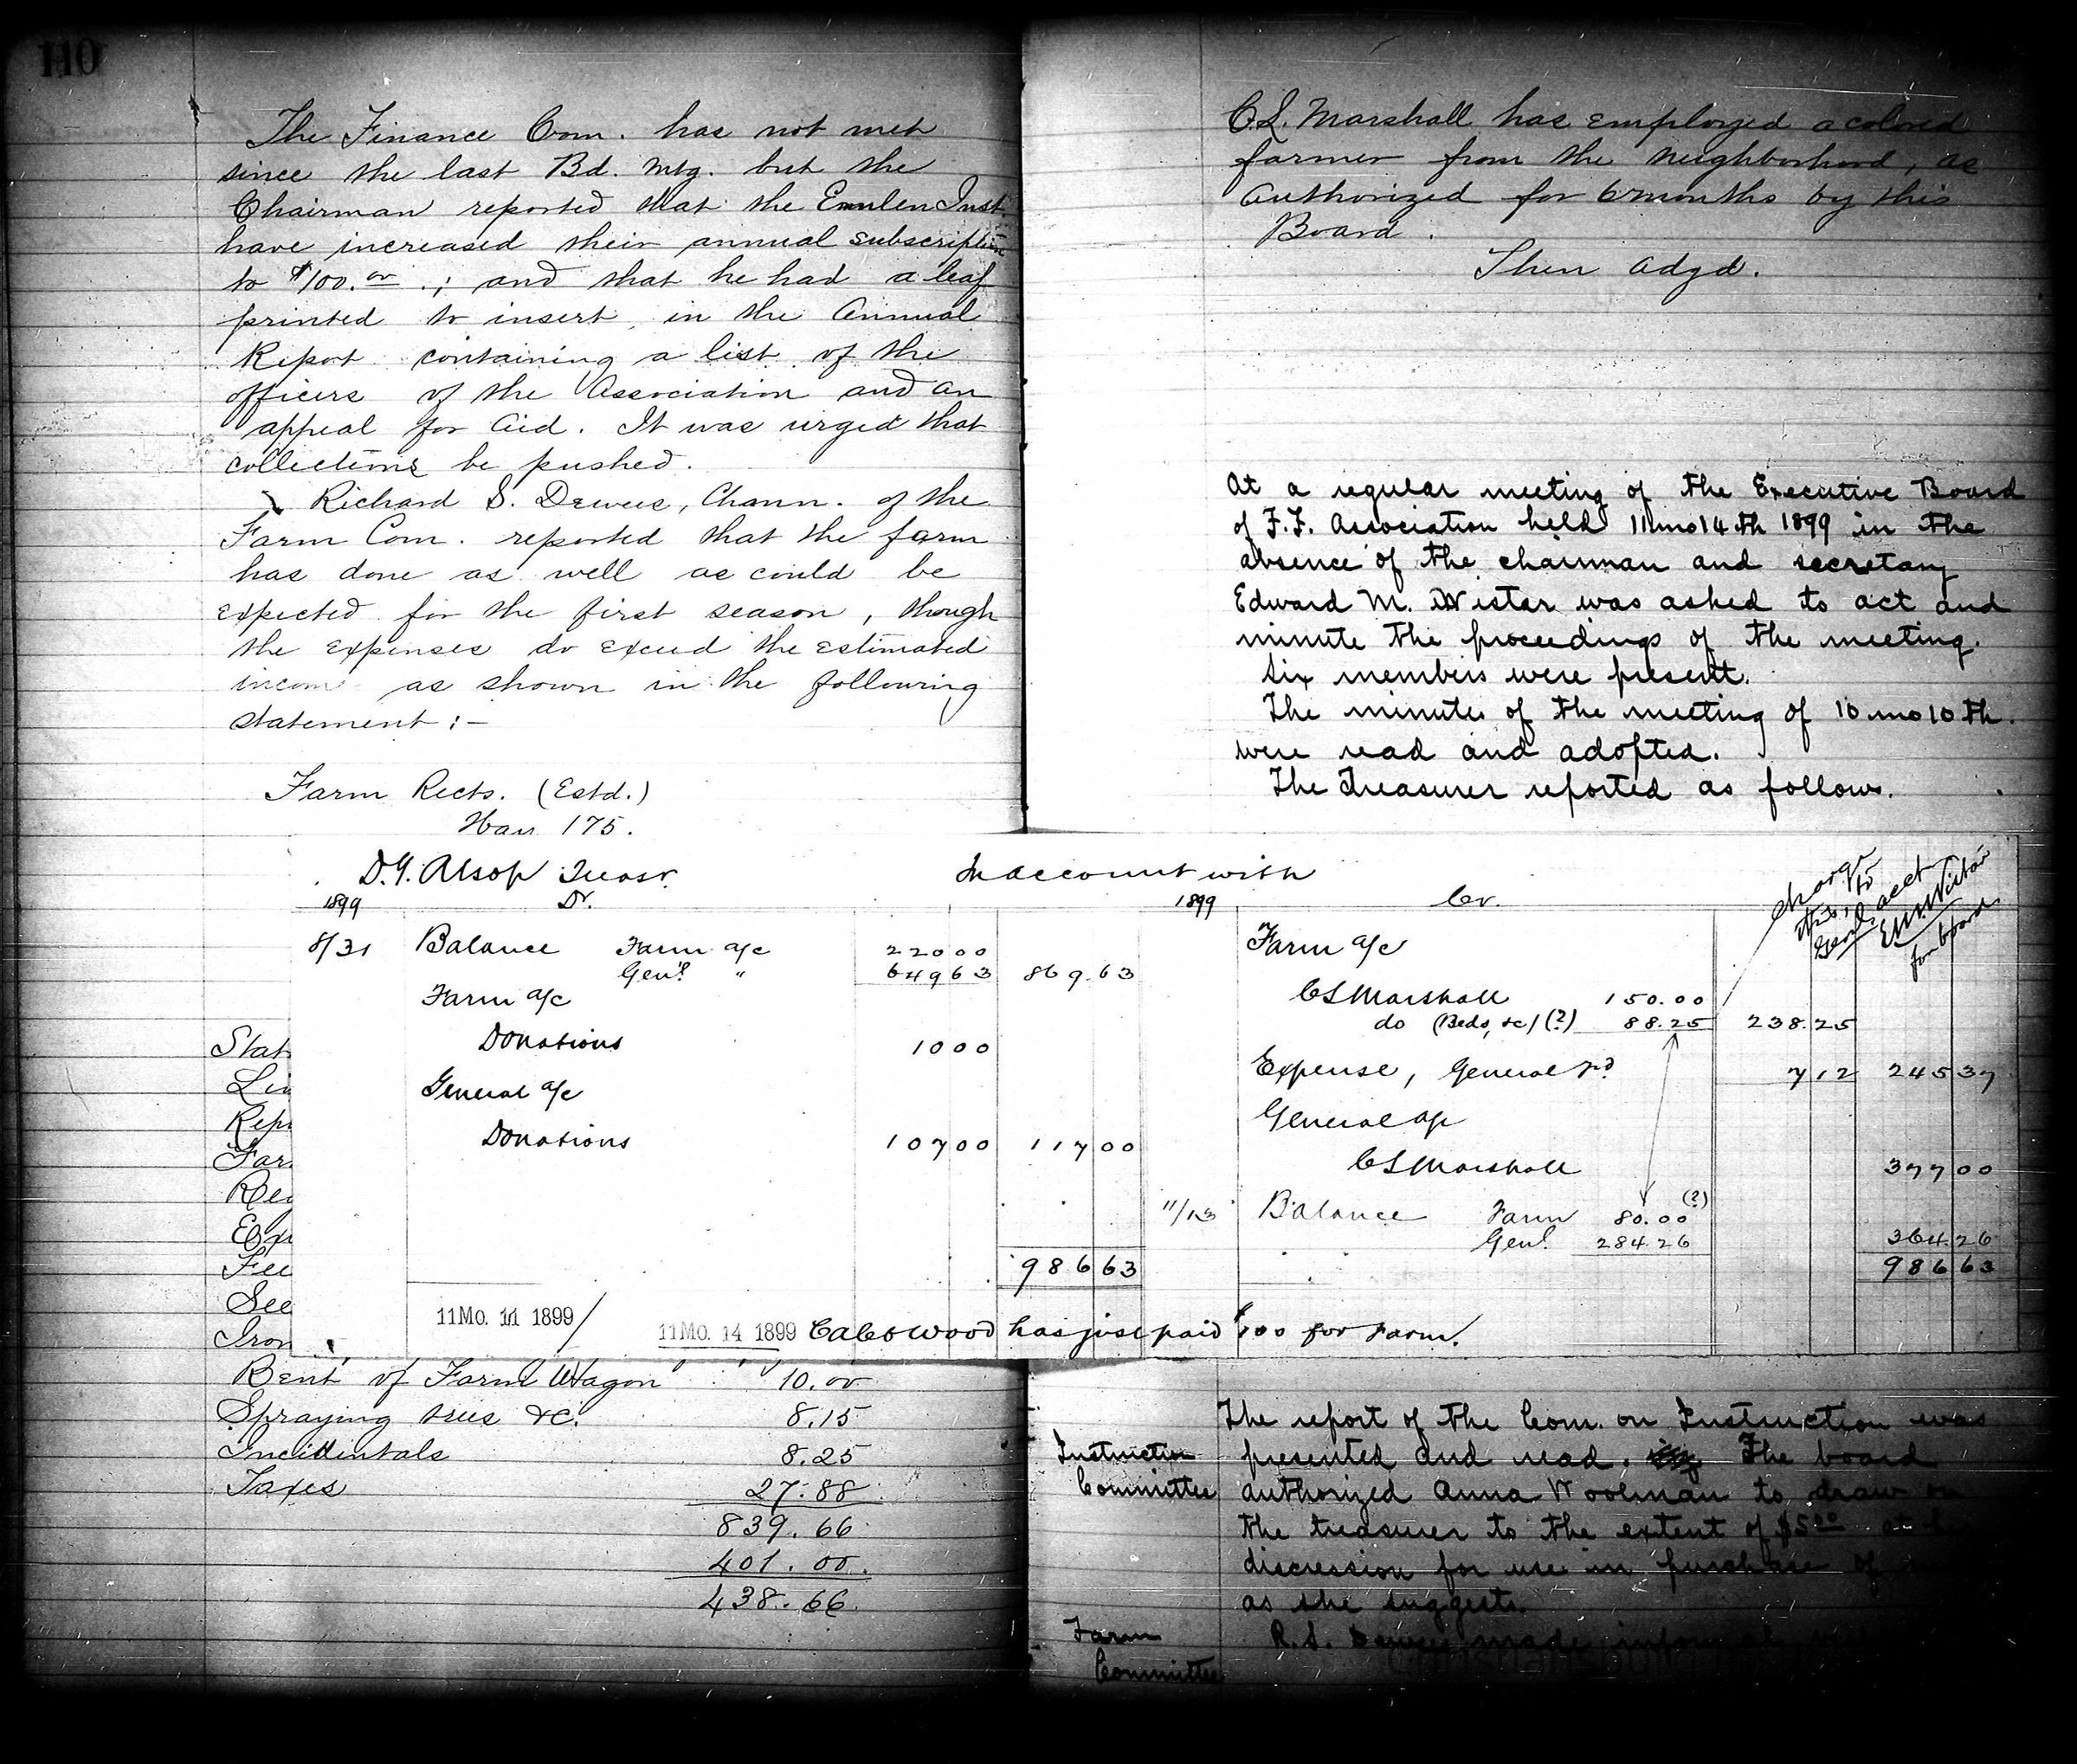 110
The Finance Com. has not met
since the last Bd. Mtg. but the
Chairman reported that the Emlen Inst.
have increased their annual subscription
to $100.00.; and that he had a leaf
printed to insert in the Annual
Report containing a list of the
officers of the Association and an
appeal for aid. It was urged that
collections be pushed.
Richard S. Dewees, Chamn. of the
Farm Com. reported that the farm
has done as well as could be
expected for the first season, though
the expenses do exceed the estimated
income as shown in the following
statement:-
Farm Rects. (Estd.)
175.
Stat
Li
Rep
Far
Re
Ex
Fee
See
Iron
Rent of Farm Wagon 10.00
Spraying trees &c. 8.15
Incidentals 8.25
Taxes 27.88
839.66
401.00.
438.66
C.S. Marshall has employed a colored
farmer from the neighborhood, as
authorized for 6 months by this
Board.
Then adgd.
At a regular meeting of the Executive Board
of F.F. Association held 11mo14th 1899 in the
absence of the chairman and secretary
Edward M. Wistar was asked to act and
minute the proceedings of the meeting.
Six members were present.
The minutes of the meeting of 10mo10th.
were read and adopted.
The Treasurer reported as follows.
D.G. Alsop Treasr. In account with
1899 Dr. 1899 Cr.
charge this to Genl. acct E.M. Wistar for board
8/31 Balance Farm a/c 220 00
Genl " 649 63 869.63
Farm a/c
Donations 10 00
General a/c
Donations 107 00 117 00
986 63
Farm a/c
CS Marshall 150.00
do (Beds, &c) (?) 88.25 238.25
Expense, General 7 12 245 37
General a/c
CS Marshall 377 00
11/13 Balance Farm 80.00 (?)
Genl. 284.26 364.26
986 63
11 Mo. 11 1899 / 11 Mo. 14 1899 Caleb Wood has just paid $100 for Farm.
Instruction
Committee
The report of the Com. on Instruction was
presented and read. The board
authorized Anna Woolman to draw on
the treasurer to the extent of $5.00 at
discression for use in purchase of
as she suggests.
Farm
Committee
R.S. Dewees made informal
Christiansburg